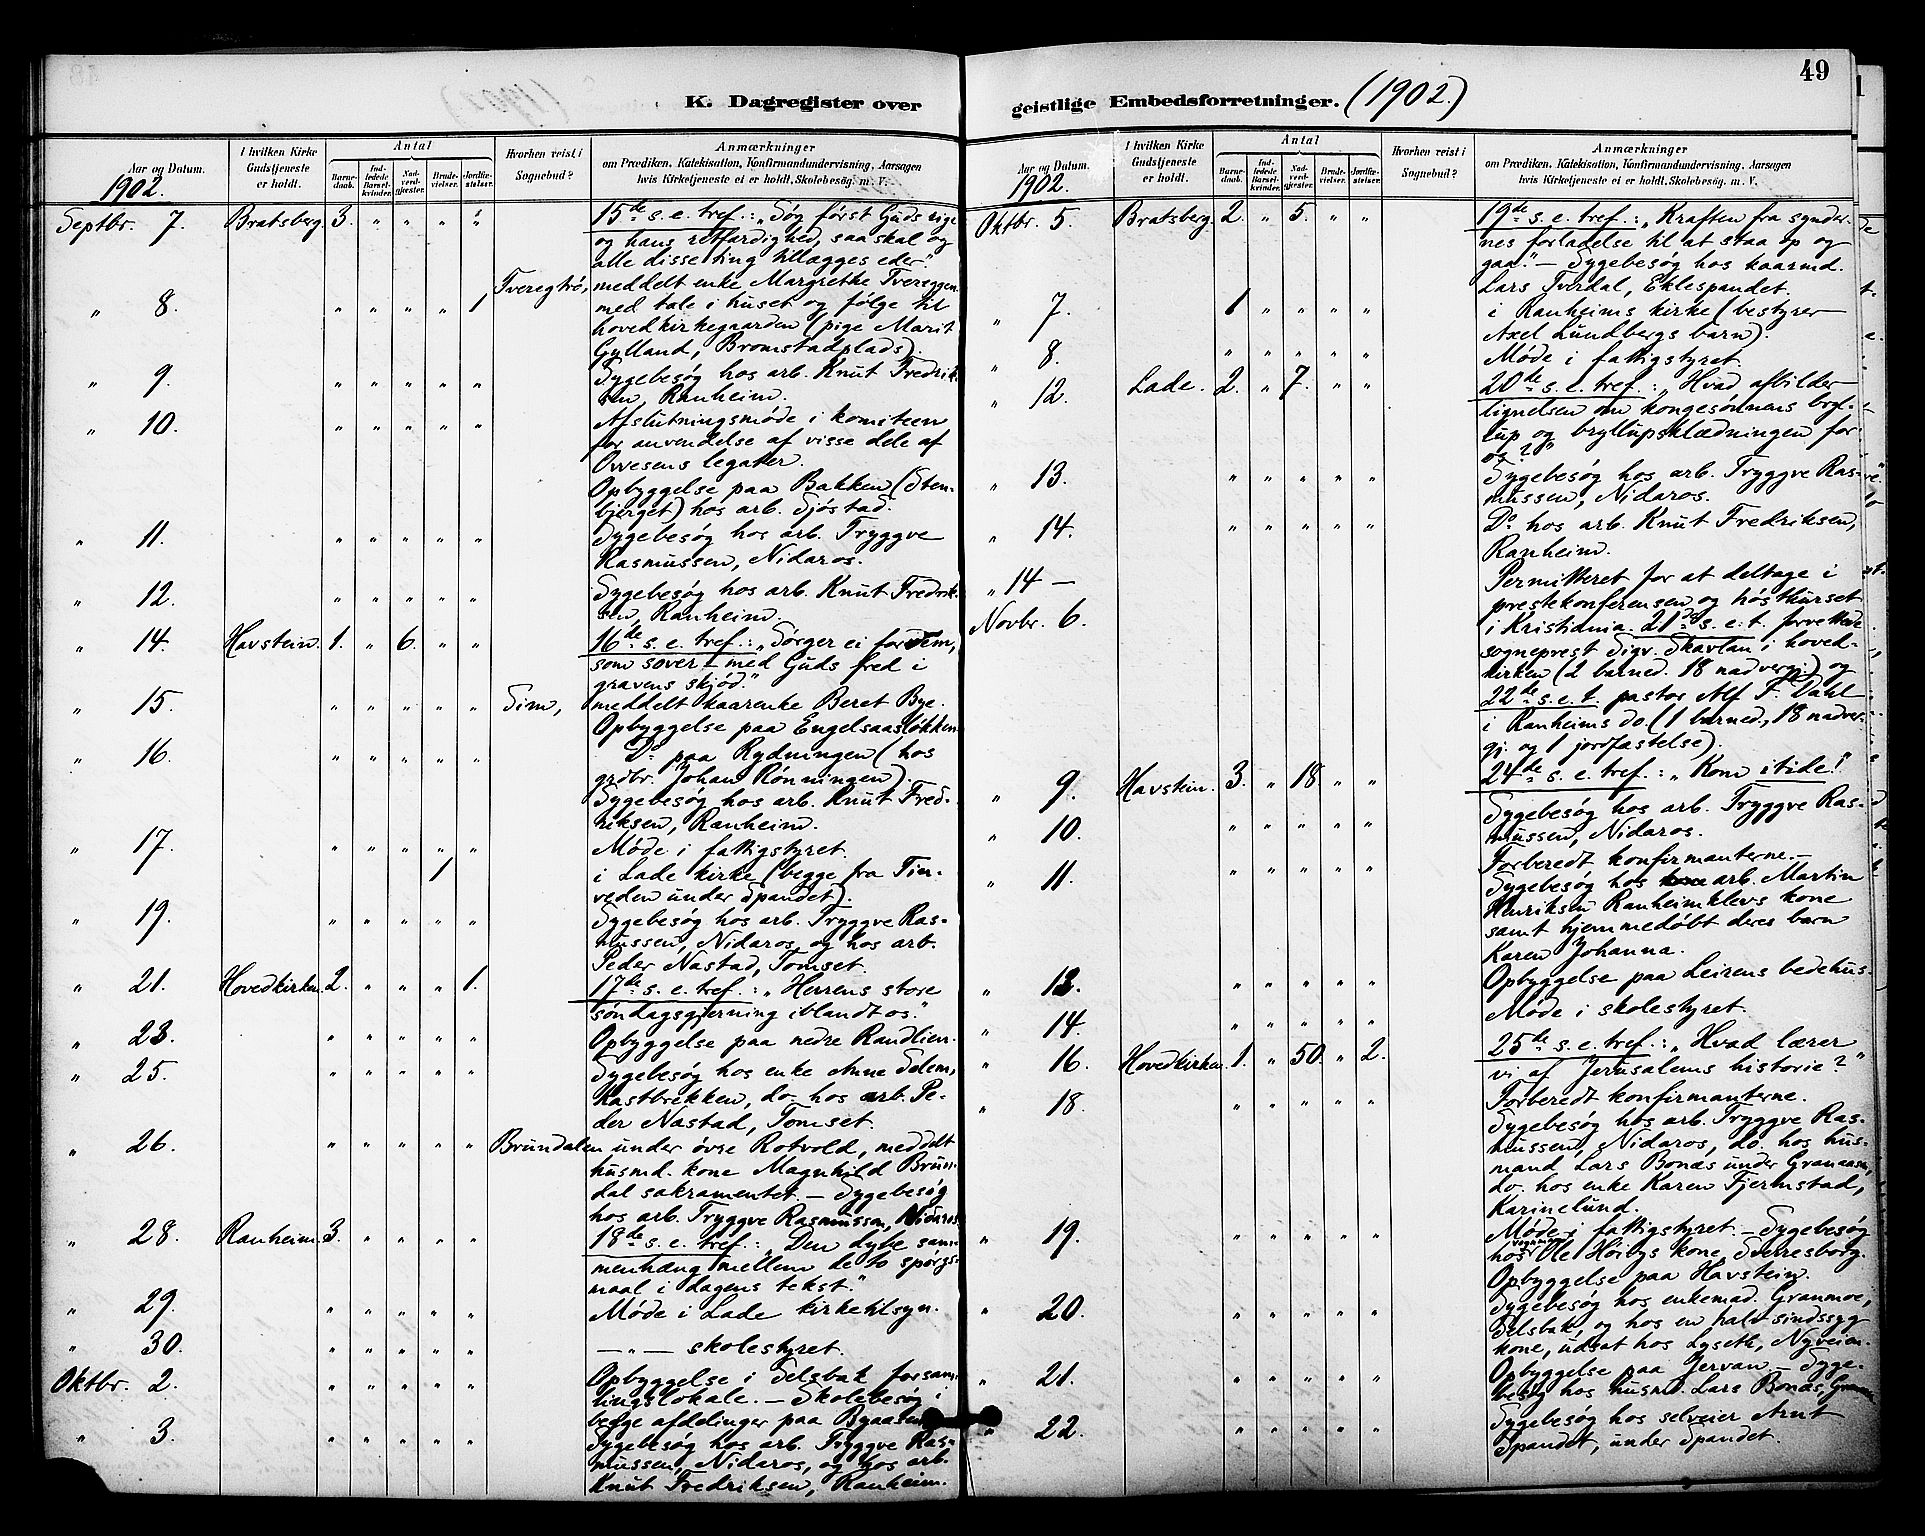 49
K. Dagregister over
geistlige Embedsforretninger. (1902.)
Aar og Datum.
1902.
I hvilken Kirke
Gudstjeneste
er holdt.
Antal
Barne-
daab.
Ind-
ledede
Barsel-
kvinder.
Nad-
verd-
gjester.
Brude-
vielser.
Jordfæ-
stelser.
Hvorhen reist i
Sognebud?
Anmærkninger
om Prædiken, Katekisation, Konfirmandundervisning, Aarsagen
hvis Kirketjeneste ei er holdt, Skolebesøg. m. V.
Septbr. 7. Bratsberg. 3. " " " " 15de s. e. tref.: "Søg først Guds rige
og hans retfærdighed, saa skal og
alle disse ting tillægges eder."
" 8. " " " " 1 Tveregtrø, meddelt enke Margrethe Tvereggen
med tale i huset og følge til
hovedkirkegaarden (pige Marit
Gylland, Bromstadplads).
" 9. " " " " " Sygebesøg hos arb. Knut Fredrik-
sen, Ranheim.
" 10. " " " " " Afslutningsmøde i komiteen
for anvendelse af visse dele af
Ovvesens legater.
Opbyggelse paa Bakken (Sten-
bjerget) hos arb. Sjøstad.
" 11. " " " " " Sygebesøg hos arb. Tryggve
Rasmussen, Nidaros.
" 12. " " " " " Sygebesøg hos arb. Knut Fredrik-
sen, Ranheim.
" 14. Havstein. 1. " 6. " " 16de s. e. tref.: "Sørger ei for dem,
som sover – med Guds fred i
gravens skjød."
" 15. " " " " " Sim, meddelt kaarenke Beret Bye.
Opbyggelse paa Engelsaasløkken.
" 16. " " " " " Do paa Rydningen (hos
grdbr. Johan Rønningen).
Sygebesøg hos arb. Knut Fred-
riksen, Ranheim.
" 17. " " " " " Møde i fattigstyret.
1 i Lade kirke (begge fra Tier-
veden under Spandet).
" 19. " " " " " Sygebesøg hos arb. Tryggve Ras-
mussen, Nidaros, og hos arb.
Peder Nastad, Tomset.
" 21. Hovedkirken. 2. " " " 1. 17de s. e. tref.: "Herrens store
søndagsgjerning iblandt os."
" 23. " " " " " Opbyggelse paa nedre Randlien.
" 25. " " " " " Sygebesøg hos enke Anne Solem,
Kastbrekken, do. hos arb. Pe-
der Nastad, Tomset.
" 26. " " " " " Brundalen under øvre Rotvold, meddelt
husmd. kone Magnhild Brun-
dal sakramentet. – Sygebesøg
hos arb. Tryggve Rasmussen, Nidaros
" 28. Ranheim. 3. " " " " 18de s. e. tref.: "Den dybe sam-
menhæng mellem de to spørgs-
maal i dagens tekst."
" 29. " " " " " Møde i Lade kirketilsyn.
" 30. " " " " " — " — skolestyret.
Oktbr. 2. " " " " " Opbyggelse i Selsbak forsam-
lingslokale. – Skolebesøg i
begge afdelinger paa Byaasen
" 3. " " " " " Sygebesøg hos arb. Tryggve Ras-
mussen, Nidaros, og hos arb.
Knut Fredriksen, Ranheim.
Aar og Datum.
1902.
I hvilken Kirke
Gudstjeneste
er holdt.
Antal
Barne-
daab.
Ind-
ledede
Barsel-
kvinder.
Nad-
verd-
gjester.
Brude-
vielser.
Jordfæ-
stelser.
Hvorhen reist i
Sognebud?
Anmærkninger
om Prædiken, Katekisation, Konfirmandundervisning, Aarsagen
hvis Kirketjeneste ei er holdt, Skolebesøg. m. V.
Oktbr. 5. Bratsberg. 2. " 5. " " 19de s. e. tref.: "Kraften fra synder-
nes forladelse til at staa op og
gaa." – Sygebesøg hos kaarmd.
Lars Tverdal, Eklespandet.
" 7. 1 " " " " i Ranheims kirke (bestyrer
Axel Lundbergs barn).
" 8. " " " " " Møde i fattigstyret.
" 12. Lade. 2. " 7. " " 20de s. e. tref.: "Hvad afbilder
lignelsen om kongesønnens bryl-
lup og bryllupsklædningen for
os?"
" 13. " " " " " Sygebesøg hos arb. Tryggve Ras-
mussen, Nidaros.
" 14. " " " " " Do hos arb. Knut Fredriksen,
Ranheim.
" 14 – Permitteret for at deltage i
Novbr. 6. prestekonferensen og høstkurset
i Kristiania. 21de s. e. t. forrettede
sogneprest Sigv. Skavlan i hoved-
kirken (2 barned. 18 nadverg.) og
22de s. e. t. pastor Alf F. Dahl
i Ranheims do (1 barned., 18 nadver-
gj. og 1 jordfæstelse).
" 9. Havstein. 3. " 18. " " 24de s. e. tref.: "Kom itide!"
" 10. " " " " " Sygebesøg hos arb. Tryggve Ras-
mussen, Nidaros.
" 11. " " " " " Forberedt konfirmanterne. –
Sygebesøg hos arb. Martin
Henriksen Ranheimklevs kone
samt hjemmedøbt deres barn
Karen Johanna.
" 13. " " " " " Opbyggelse paa Leirens bedehus.
" 14. " " " " " Møde i skolestyret.
" 16. Hovedkirken. 1. " 50. " 2. 25de s. e. tref.: "Hvad lærer
vi af Jerusalems historie?"
" 18. " " " " " Forberedt konfirmanterne.
Sygebesøg hos arb. Tryggve Ras-
mussen, Nidaros, do. hos hus-
mand Lars Bonæs under Granaasen,
do. hos enke Karen Fjermstad,
Karinelund.
" 19. " " " " " Møde i fattigstyret. – Sygebesøg
hos vognmd. Ole Høibys kone, Sverresborg.
Opbyggelse paa Havstein.
" 20. " " " " " Sygebesøg hos enkemad. Granmoe,
Selsbak og hos en halv sindssyg
kone, udsat hos Lyseth, Nyveien.
" 21. " " " " " Opbyggelse paa Jervan. – Syge-
besøg hos husmd. Lars Bonæs,
" 22. " " " " " Sygebesøg hos selveier Arnt
Spandet, under Spandet.